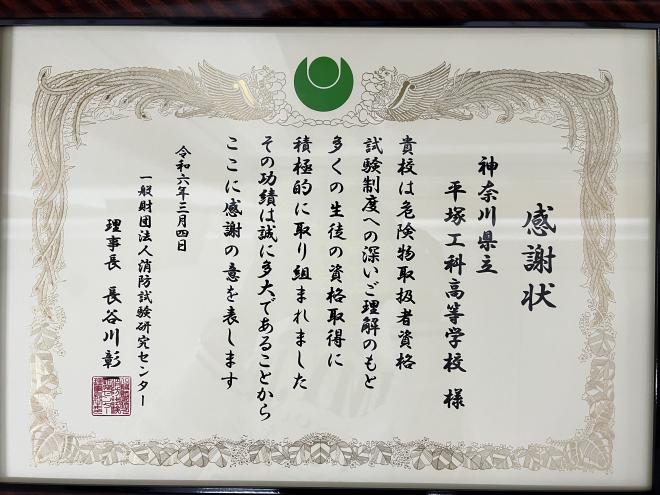 感謝状
神奈川県立
平塚工科高等学校 様
貴校は危険物取扱者資格
試験制度への深いご理解のもと
多くの生徒の資格取得に
積極的に取り組まれました
その功績は誠に多大であることから
ここに感謝の意を表します
令和六年三月四日
一般財団法人消防試験研究センター
理事長 長谷川彰